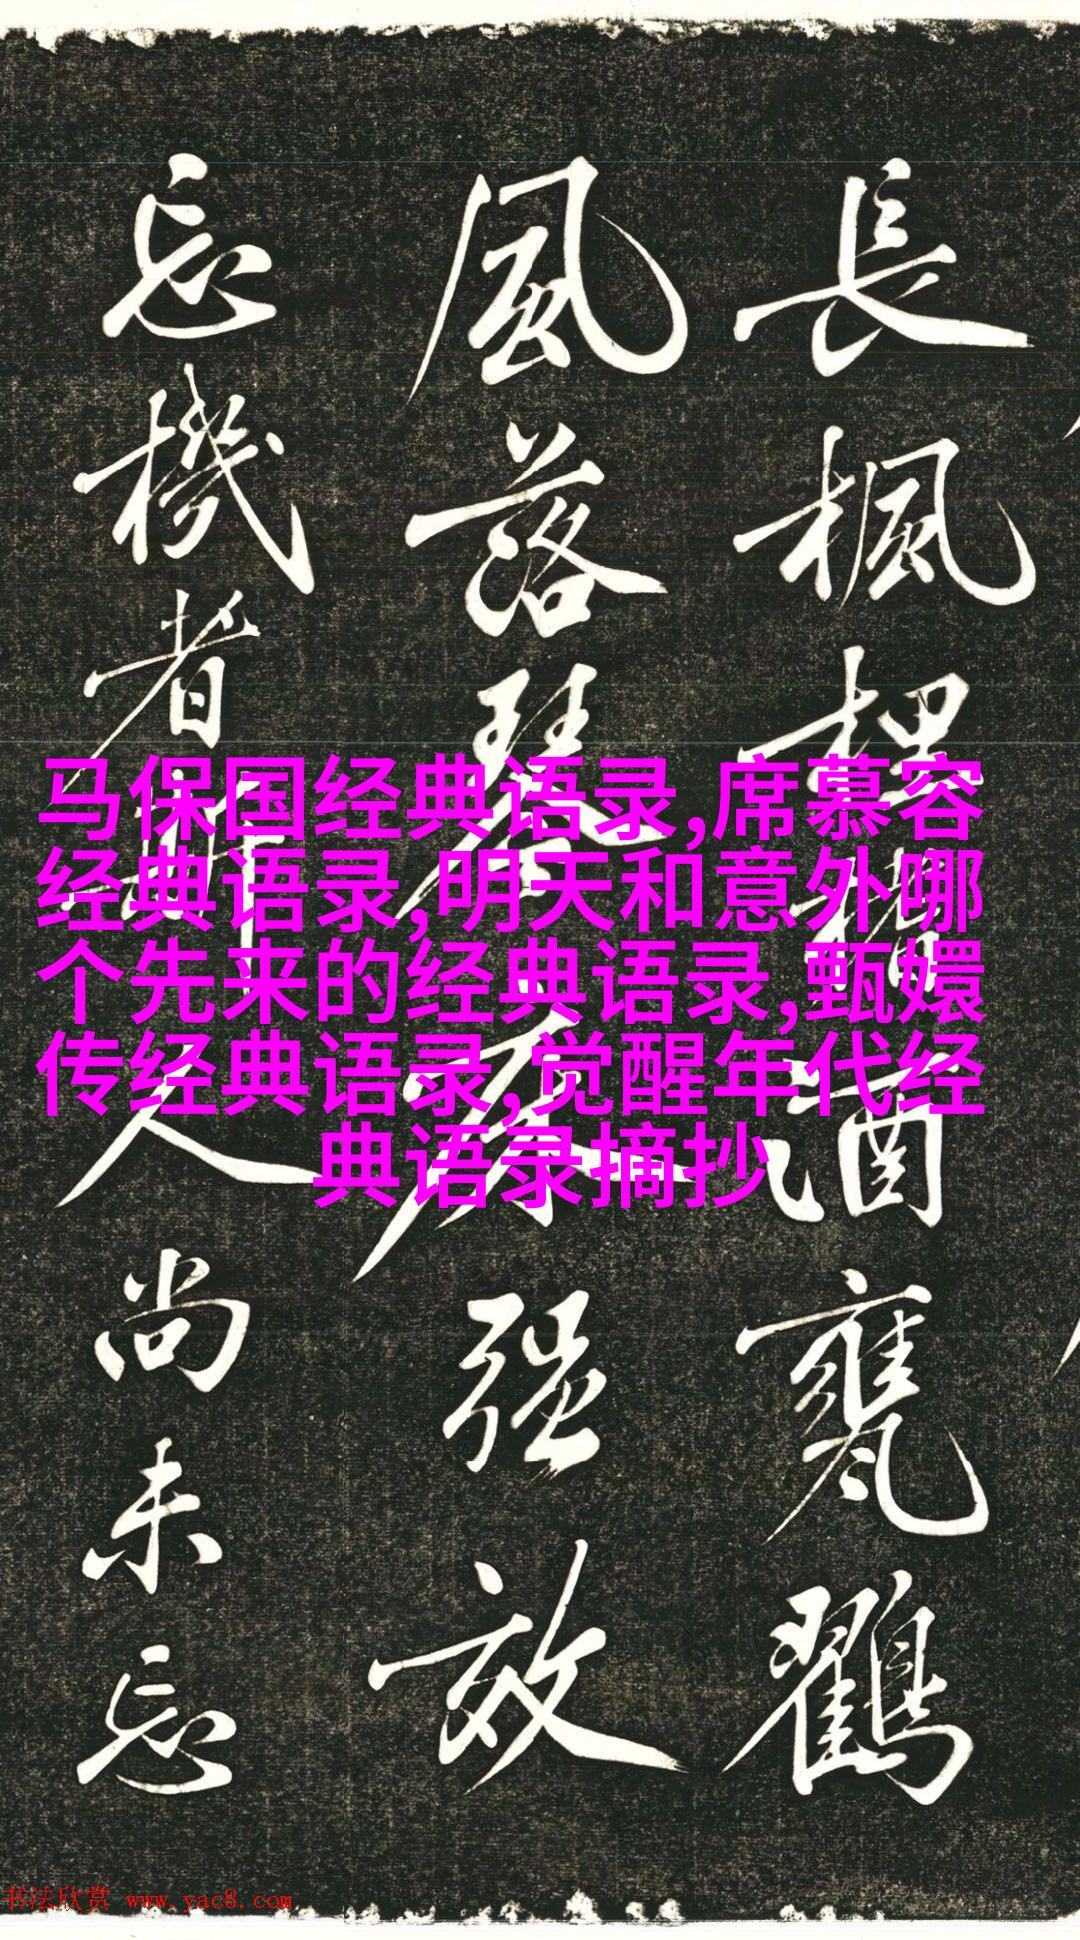 長楓
酒甕鸛
風落琴
强效
忘機者
人尚未忘
马保国经典语录,席慕容
经典语录,明天和意外哪
个先来的经典语录,甄嬛
传经典语录,觉醒年代经
典语录摘抄
书法欣赏 www.yac8.com